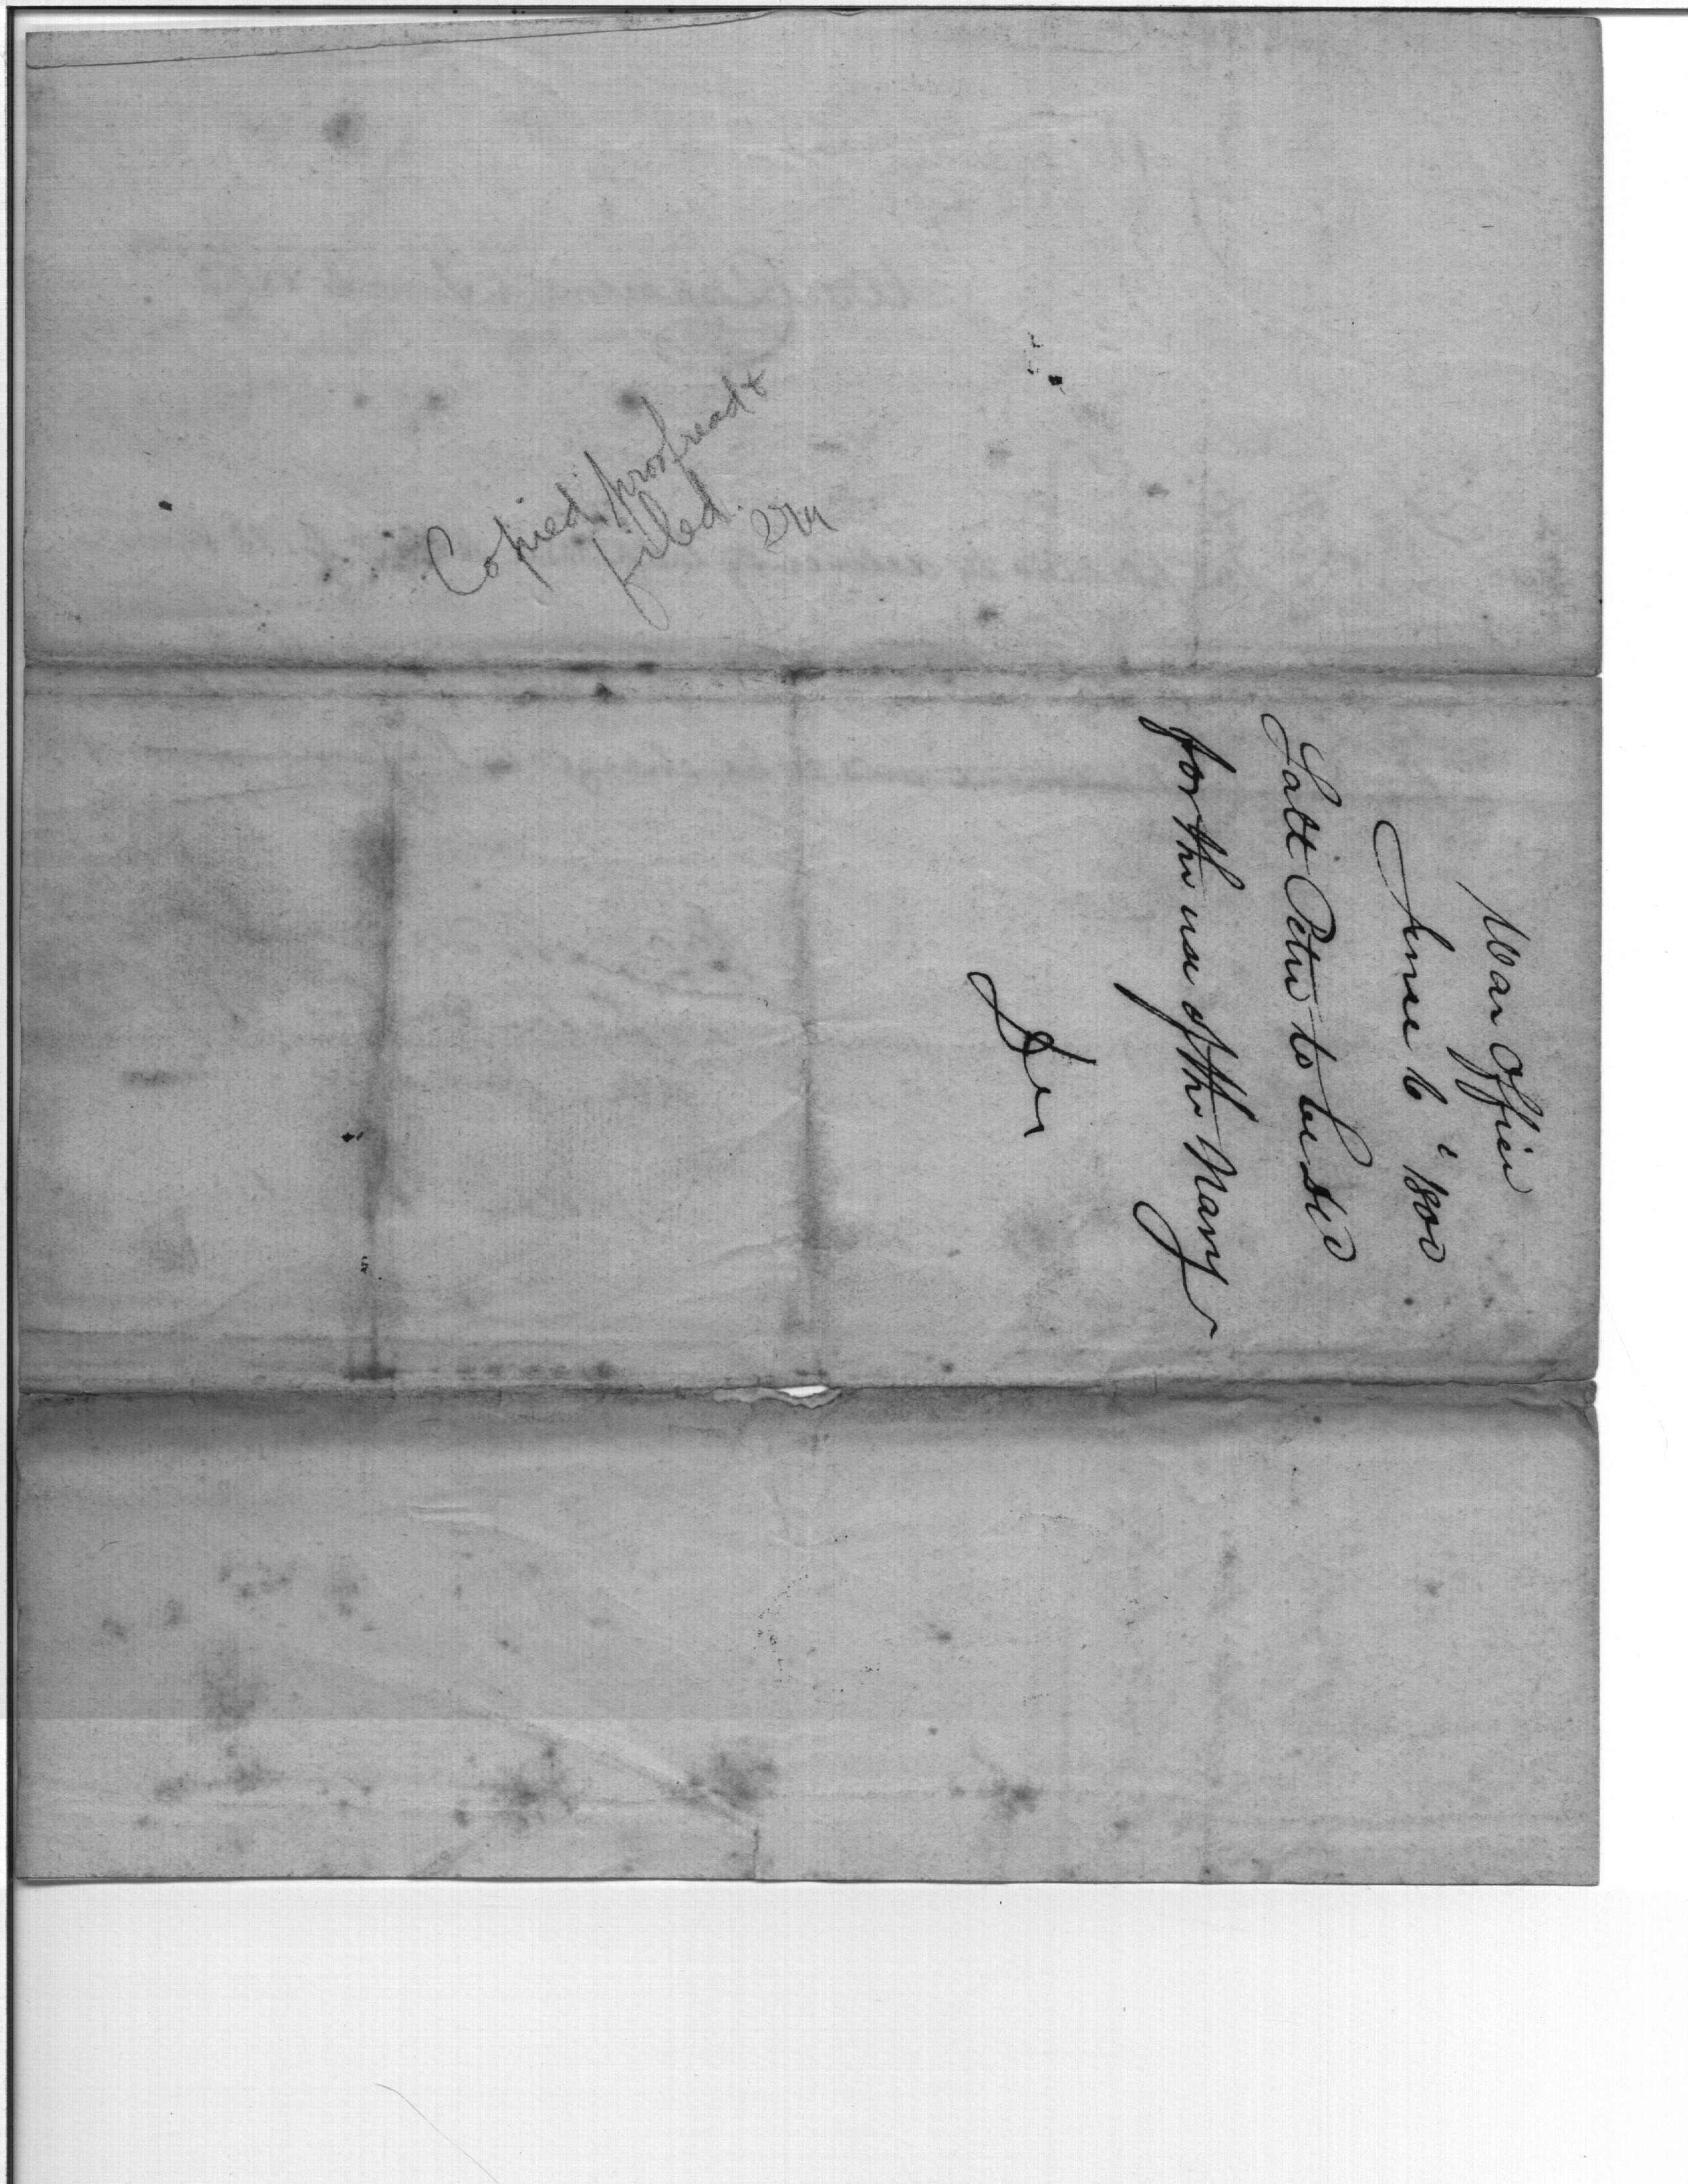 War Office
June 6th 1800
Salt Petre to be used
for the use of the Navy
Copied, proofread &
filed.